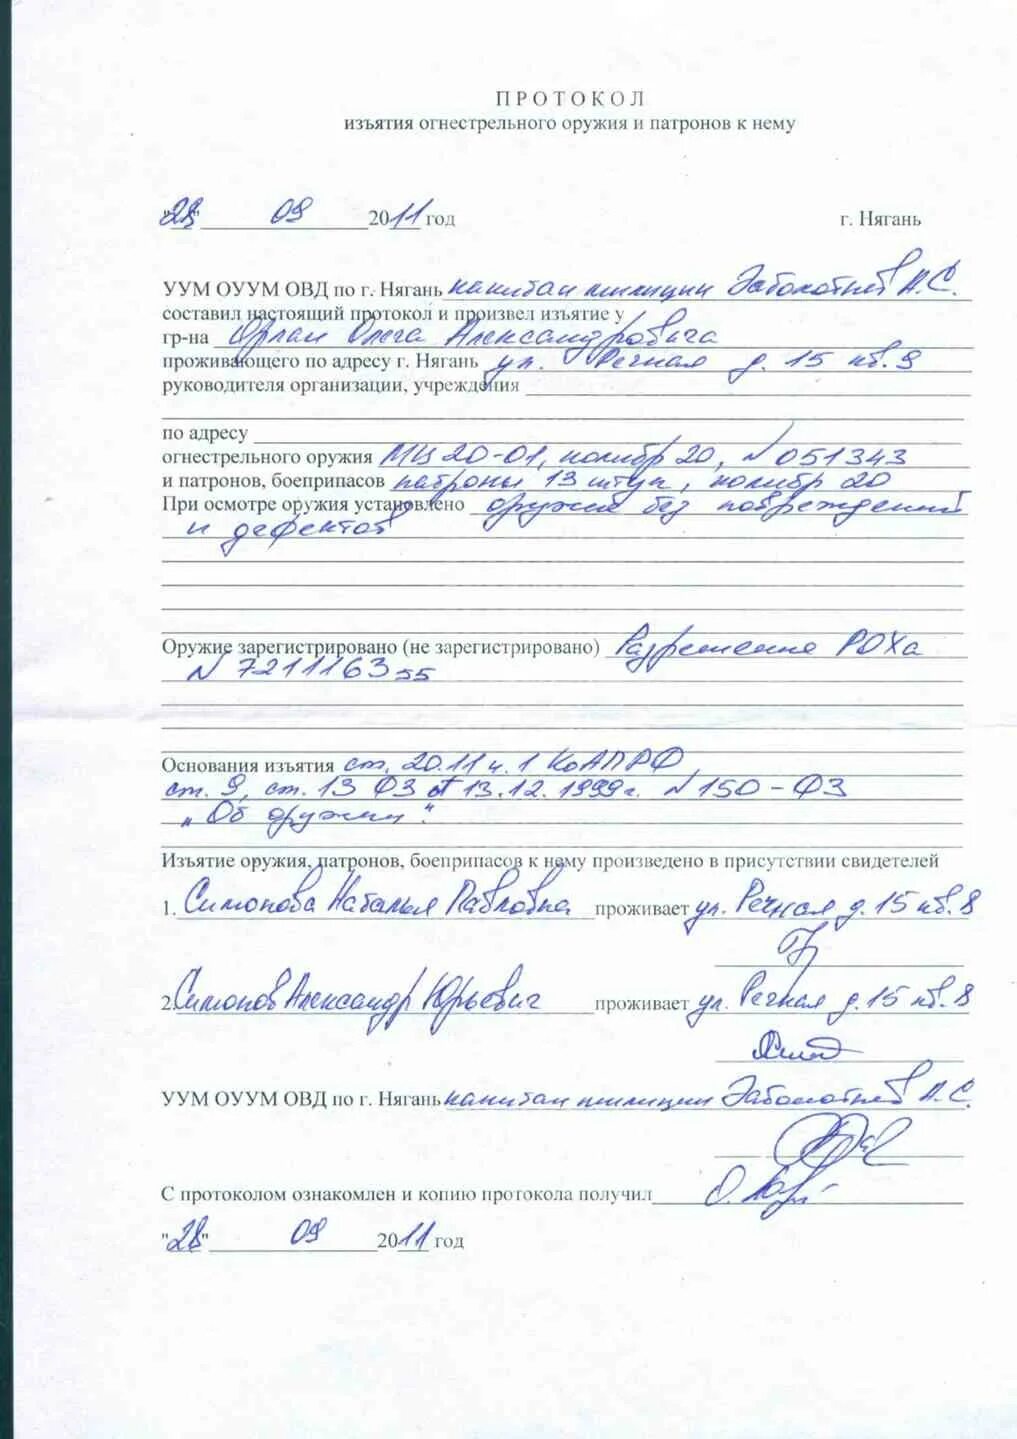 ПРОТОКОЛ
изъятия огнестрельного оружия и патронов к нему
"28" 09 2011 год г. Нягань
УУМ ОУУМ ОВД по г. Нягань капитан милиции Заболотнев А.С.
составил настоящий протокол и произвел изъятие у
гр-на Орлан Олега Александровича
проживающего по адресу г. Нягань ул. Речная д. 15 кв. 9
руководителя организации, учреждения
по адресу
огнестрельного оружия МЦ 20-01, калибр 20, N 051343
и патронов, боеприпасов патроны 13 штук, калибр 20
При осмотре оружия установлено оружие без повреждений
и дефектов
Оружие зарегистрировано (не зарегистрировано) Разрешение РОХа
N 7211163
Основания изъятия ст. 20.11 ч. 1 КоАПРФ
ст. 9, ст. 13 ФЗ от 13.12.1999г. N 150-ФЗ
"Об оружии".
Изъятие оружия, патронов, боеприпасов к нему произведено в присутствии свидетелей
1. Симонова Наталья Павловна проживает ул. Речная д. 15 кв. 8
2. Симонов Александр Юрьевич проживает ул. Речная д. 15 кв. 8
УУМ ОУУМ ОВД по г. Нягань капитан милиции Заболотнев А.С.
С протоколом ознакомлен и копию протокола получил
"28" 09 2011 год